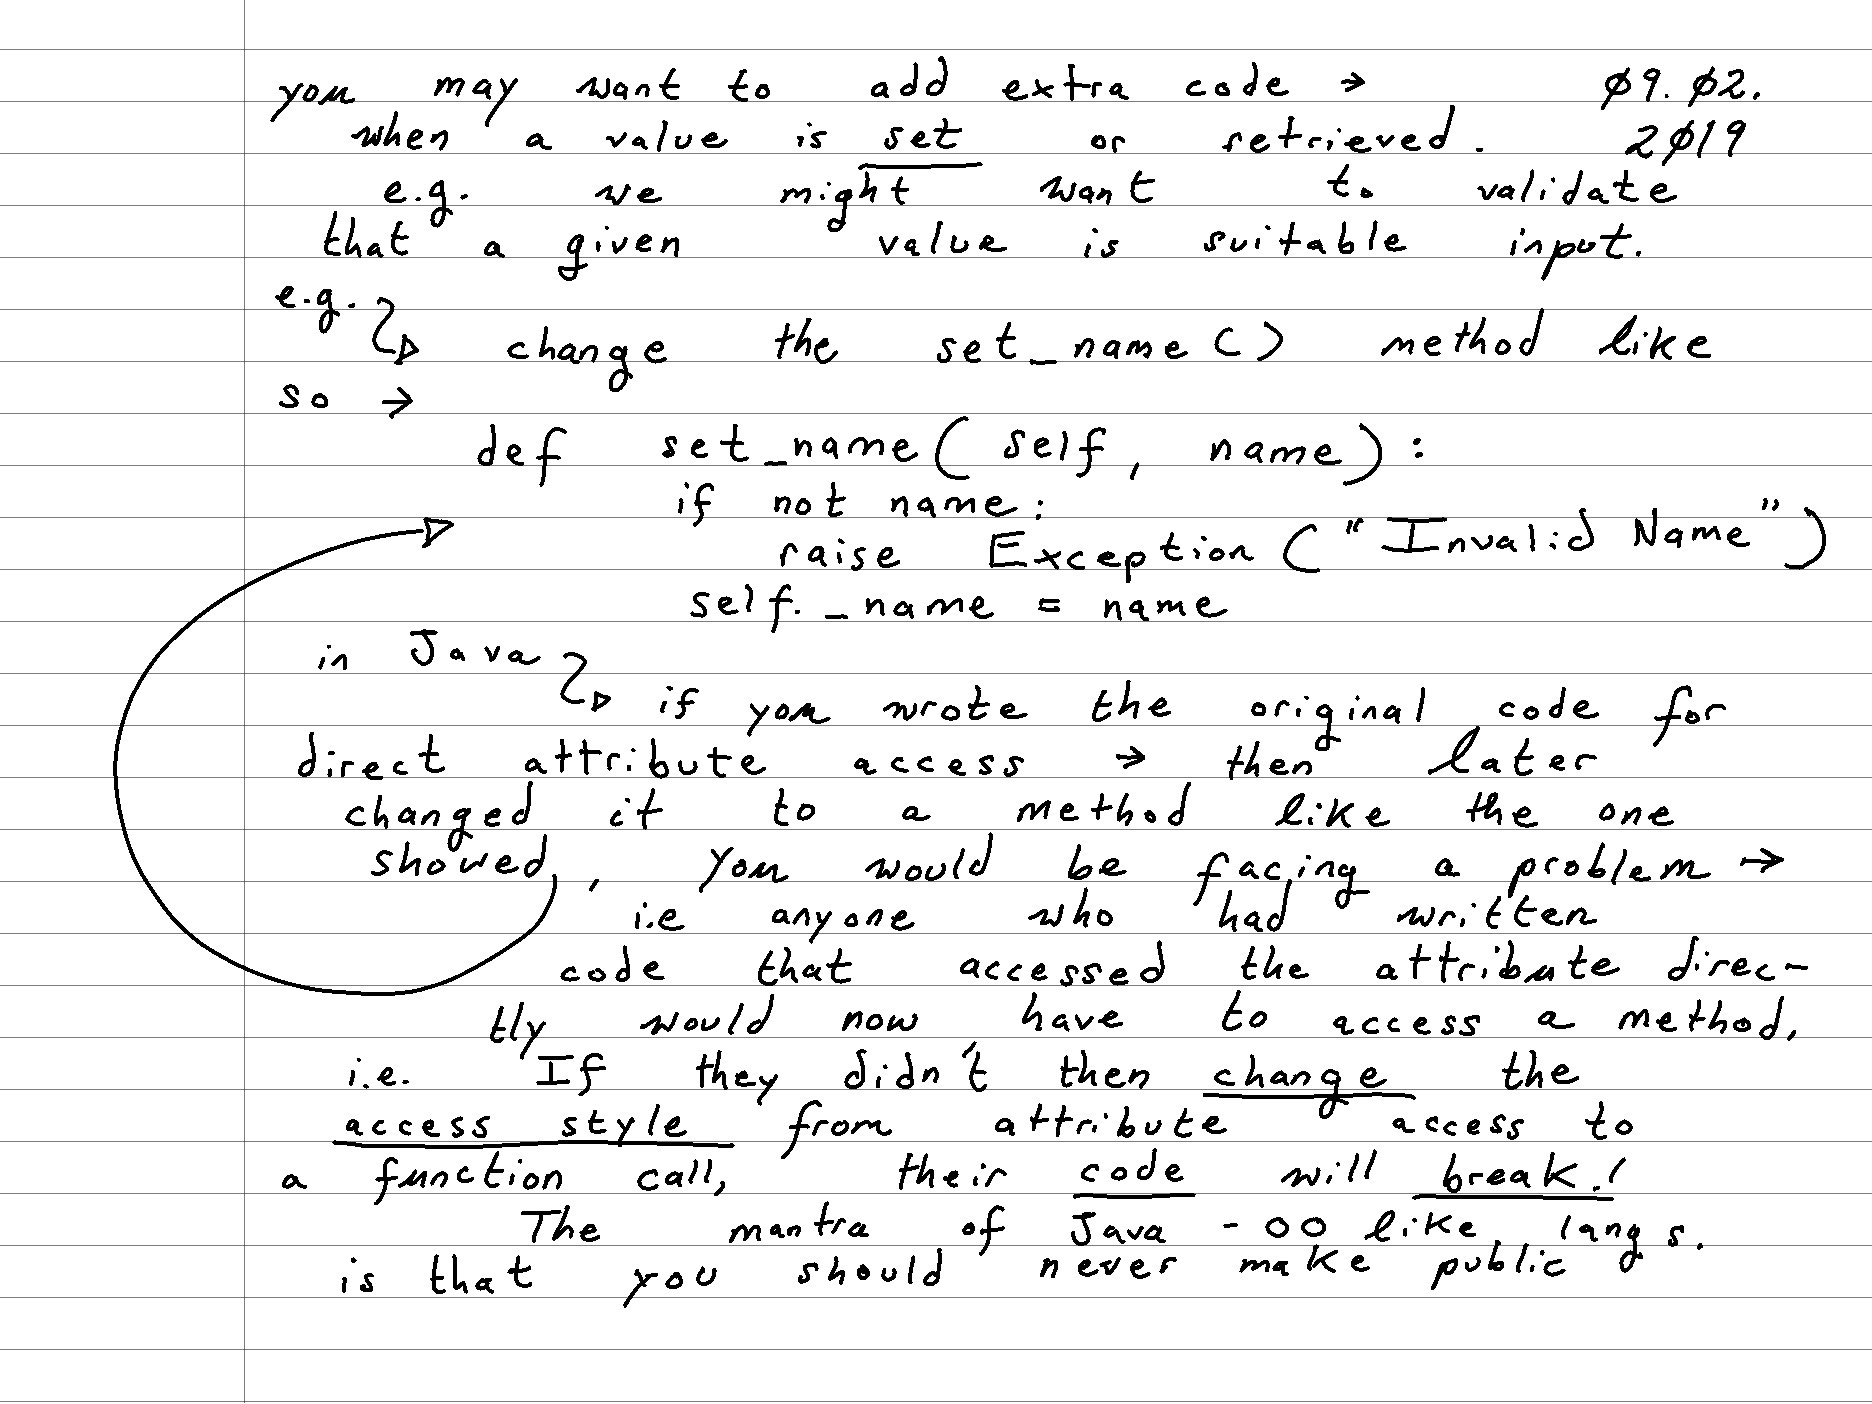 you may want to add extra code → ø9. ø2.
when a value is set or retrieved. 2ø19
e.g. we might want to validate
that a given value is suitable input.
e.g.
change the set_name() method like
so →
def set_name( self, name):
if not name:
raise Exception("Invalid Name")
self._name = name
in Java
if you wrote the original code for
direct attribute access → then later
changed it to a method like the one
showed, you would be facing a problem →
i.e anyone who had written
code that accessed the attribute direc-
tly would now have to access a method,
i.e. If they didn't then change the
access style from attribute access to
a function call, their code will break!
The mantra of Java -OO like langs.
is that you should never make public